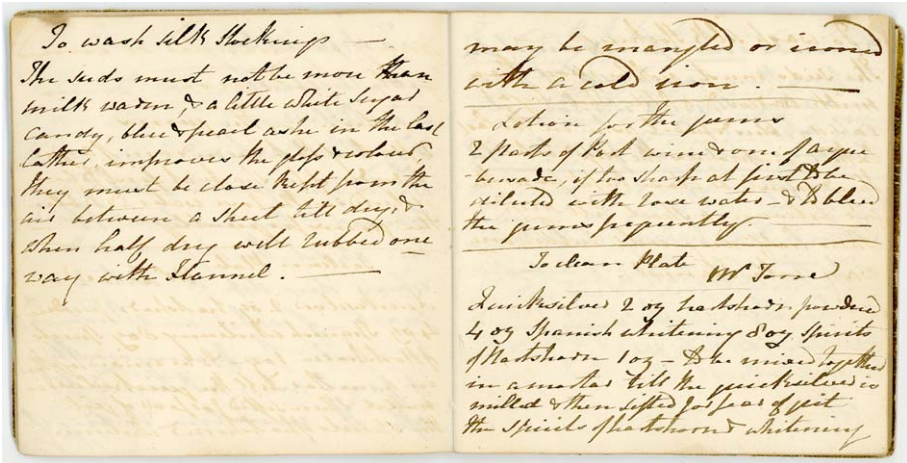 To wash silk Stockings —
The suds must not be more than
milk warm, & a little white Sugar
candy, blue & pearl ashe in the last
lather, improves the gloss & colour,
they must be close kept from the
air between a sheet till dry, &
when half dry well rubbed one
way with Flannel. —
may be mangled or ironed
with a cold iron. —
Lotion for the gums
2 parts of Port wine & one of arque
busade, if too sharp at first to be
diluted with rose water — & to bleed
the gums frequently. —
To clean Plate Mr
Quicksilver 2 oz hartshorn powdered
4 oz Spanish whitening 8 oz Spirits
of Hartshorn 1 oz — to be mixed together
in a mortar till the quicksilver is
milled & then sifted for fear of grit
the spirits of hartshorn & whitening